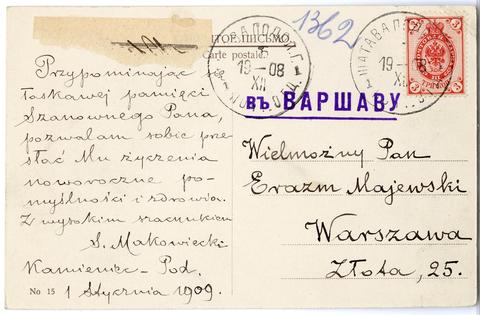 ТОЕ ПИСЬМО.
Carte postale.
1362
19-08
XII
ШАТАВА ПОД.
19-8
XII
3
3
въ ВАРШАВУ
Przypominając się
łaskawej pamięci
Szanownego Pana,
pozwalam sobie prze-
słać Mu życzenia
noworoczne po-
myślności i zdrowia.
Z wysokim szacunkiem
S. Makowiecki
Kamieniec-Pod.
No 15
1 Stycznia 1909.
Wielmożny Pan
Erazm Majewski
Warszawa
Złota, 25.